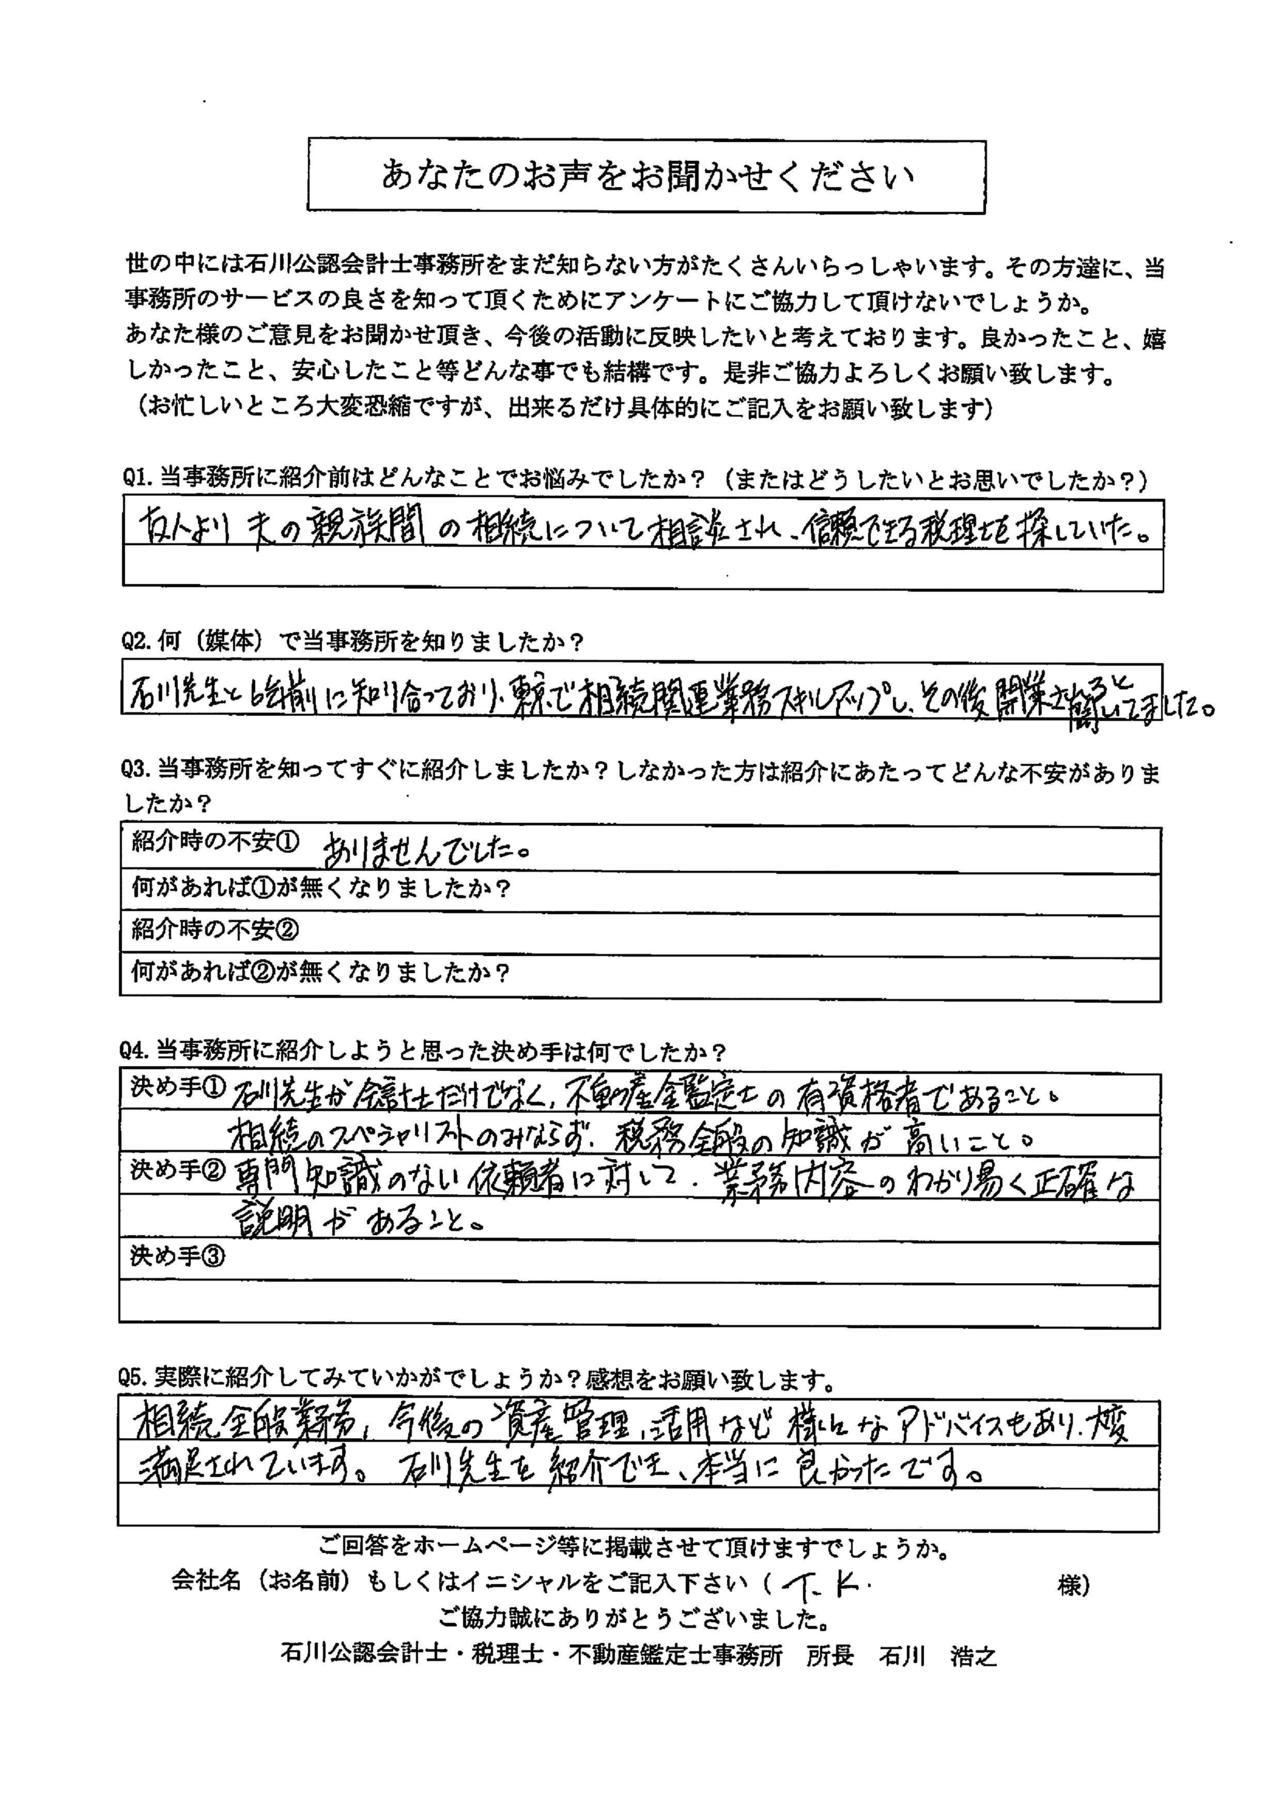 あなたのお声をお聞かせください
世の中には石川公認会計士事務所をまだ知らない方がたくさんいらっしゃいます。その方達に、当
事務所のサービスの良さを知って頂くためにアンケートにご協力して頂けないでしょうか。
あなた様のご意見をお聞かせ頂き、今後の活動に反映したいと考えております。良かったこと、嬉
しかったこと、安心したこと等どんな事でも結構です。是非ご協力よろしくお願い致します。
(お忙しいところ大変恐縮ですが、出来るだけ具体的にご記入をお願い致します)
Q1. 当事務所に紹介前はどんなことでお悩みでしたか?(またはどうしたいとお思いでしたか?)
友人より 夫の親族間の相続について相談され、信頼できる税理士を探していた。
Q2. 何(媒体)で当事務所を知りましたか?
石川先生と6年前に知り合っており、東京で相続関連業務スキルアップし、その後開業されると
聞いてました。
Q3. 当事務所を知ってすぐに紹介しましたか?しなかった方は紹介にあたってどんな不安がありま
したか?
紹介時の不安① ありませんでした。
何があれば①が無くなりましたか?
紹介時の不安②
何があれば②が無くなりましたか?
Q4. 当事務所に紹介しようと思った決め手は何でしたか?
決め手① 石川先生が会計士だけでなく、不動産鑑定士の有資格者であること。
相続のスペシャリストのみならず、税務全般の知識が高いこと。
決め手② 専門知識のない依頼者に対して、業務内容のわかり易く正確な
説明があること。
決め手③
Q5. 実際に紹介してみていかがでしょうか?感想をお願い致します。
相続全般業務、今後の資産管理、活用など様々なアドバイスもあり、大変
満足されています。 石川先生を紹介でき、本当に良かったです。
ご回答をホームページ等に掲載させて頂けますでしょうか。
会社名(お名前)もしくはイニシャルをご記入下さい( T. K. 様)
ご協力誠にありがとうございました。
石川公認会計士・税理士・不動産鑑定士事務所 所長 石川 浩之